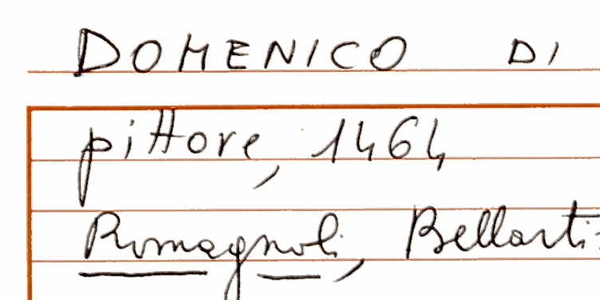 DOMENICO DI
pittore, 1464
Romagnoli, Bellarti: